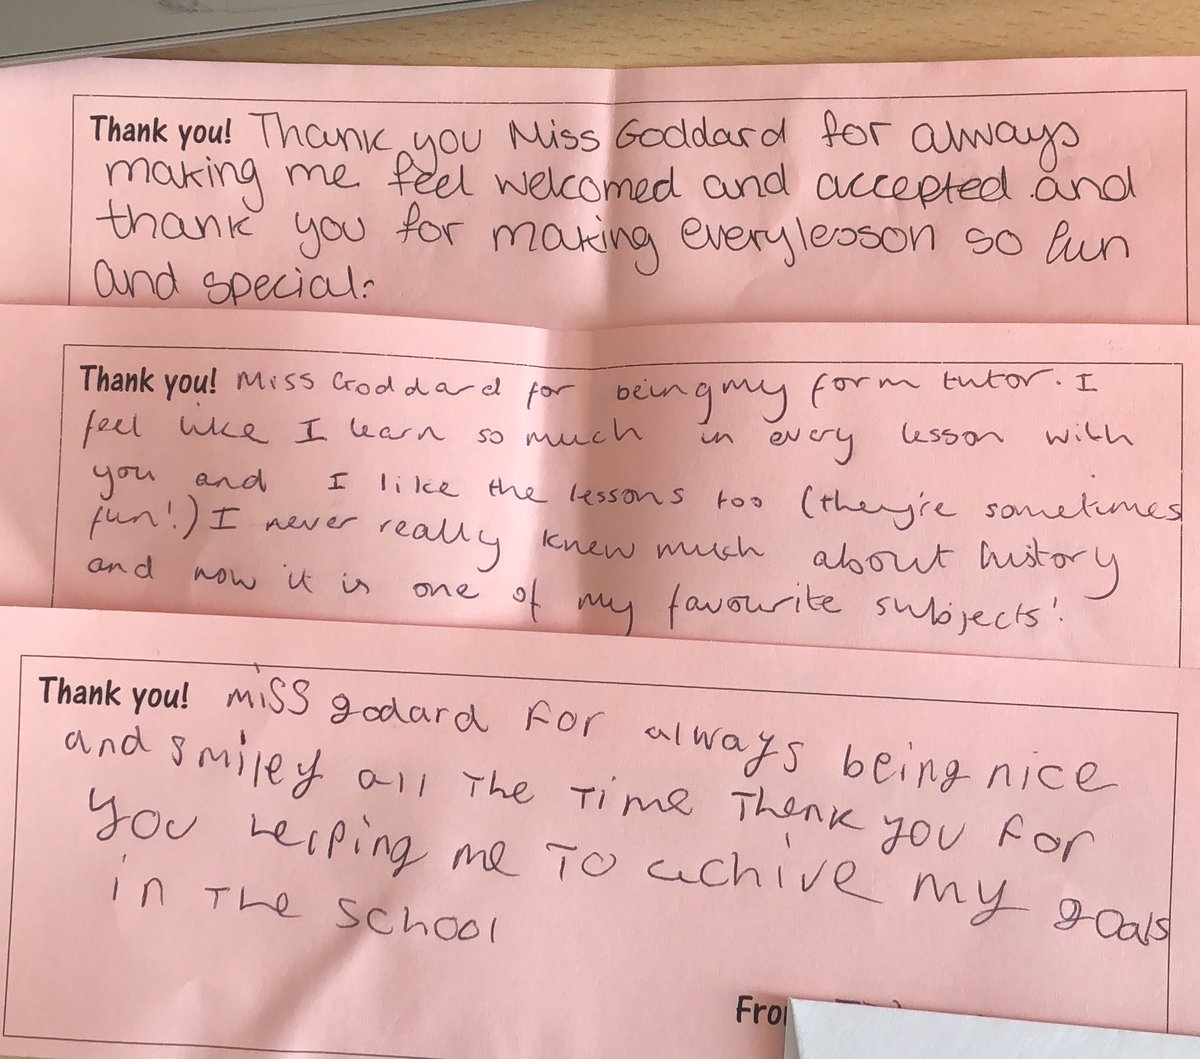 Thank you! Thank you Miss Goddard for always
making me feel welcomed and accepted and
thank you for making every lesson so fun
and special.
Thank you! Miss Goddard for being my form tutor. I
feel like I learn so much in every lesson with
you and I like the lessons too (they're sometimes
fun!) I never really knew much about history
and now it is one of my favourite subjects!
Thank you! Miss godard For always being nice
and smiley all The Time Thenk you For
you helping me To achive my goals
in The School